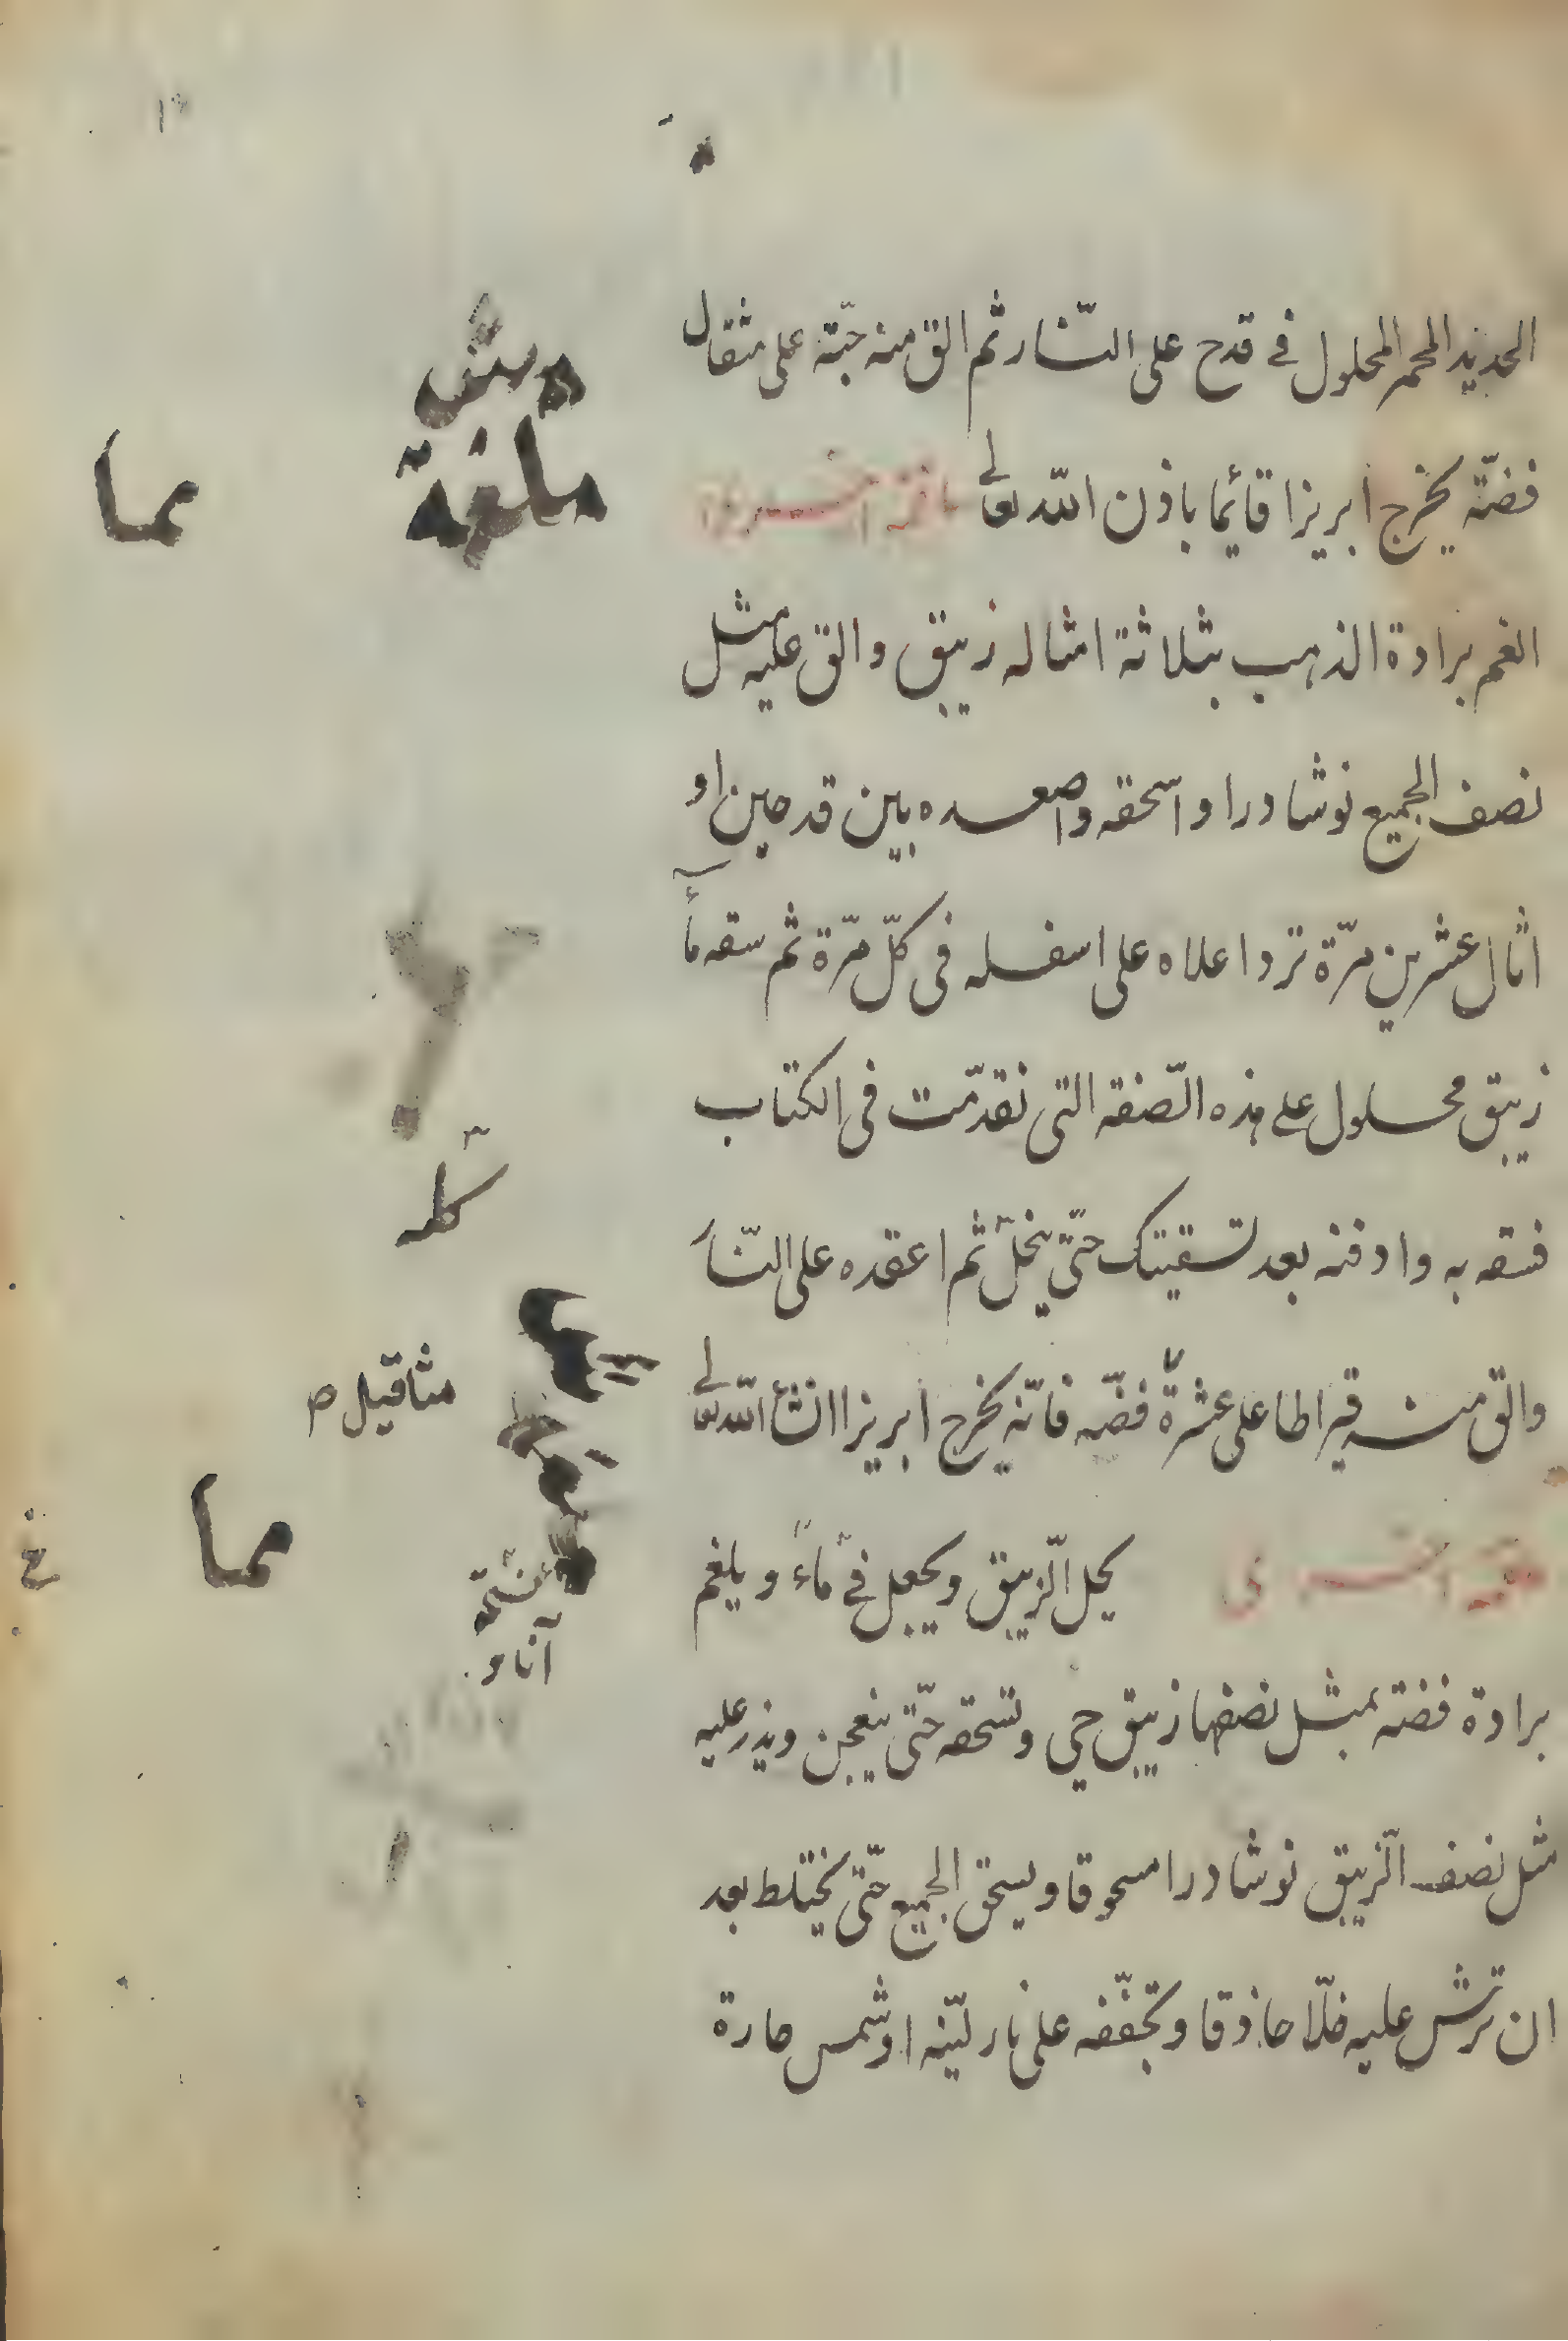 الحديد المحمر المحلول في قدح على النّار ثم الق منه حبّة على مثقال
فضّة يخرج ابريزا قائما باذن الله تعالى
الغم برادة الذهب بثلاثة امثاله زيبق والق عليه مثل
نصف الجميع نوشادرا واسحقه واصعده بين قدحين او
اثال عشرين مرّة ترد اعلاه على اسفله فى كلّ مرّة ثم سقه مآء
زيبق محلول على هذه الصّفة التى تقدّمت فى الكتاب
فسقه به وادفنه بعد تسقيتك حتّى ينحلّ ثم اعقده على النّار
والق منه قيراطا على عشرة فضّه فانّه يخرج ابريزا انشأ الله تعالى
صفة اخرى يحل الزّيبق ويجعل فى مآء ويلغم
برادة فضّه بمثل نصفها زيبق حي وتسحقه حتّى ينعجن ويذر عليه
مثل نصف الزّيبق نوشادرا مسحوقا ويسحق الجميع حتّى يختلط بعد
ان ترش عليه خلّا حاذقا وتجفّفه على نار ليّنه او شمس حارة
ملغمة
مما
كله
مثاقيل ص
مما